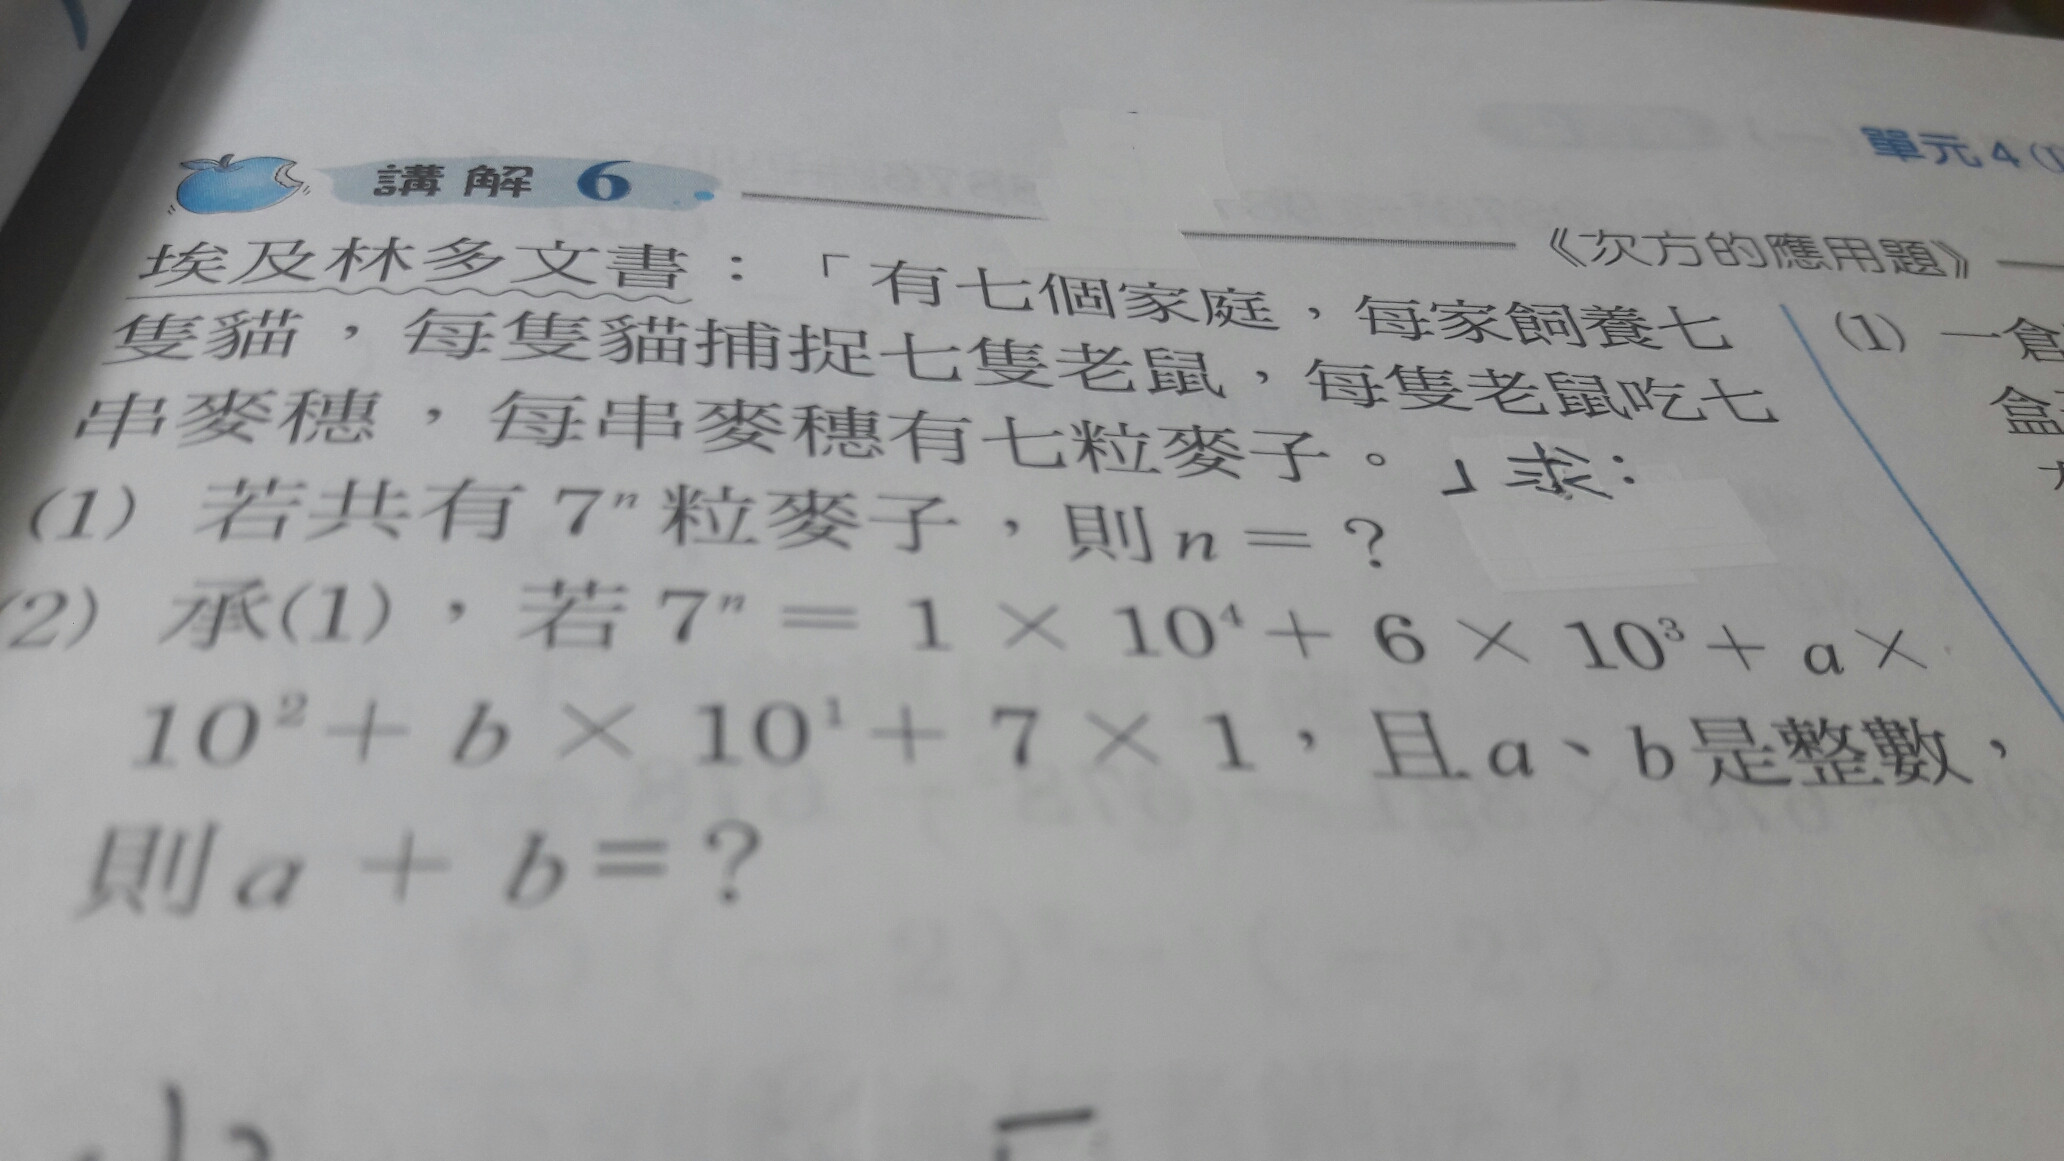 單元4(1
講解 6
《次方的應用題》
埃及林多文書：「有七個家庭，每家飼養七
隻貓，每隻貓捕捉七隻老鼠，每隻老鼠吃七
串麥穗，每串麥穗有七粒麥子。」求：
(1) 若共有 7ⁿ 粒麥子，則 n = ？
(2) 承(1)，若 7ⁿ = 1 × 10⁴ + 6 × 10³ + a ×
10² + b × 10¹ + 7 × 1，且 a、b 是整數，
則 a + b = ？
(1) 一倉
盒